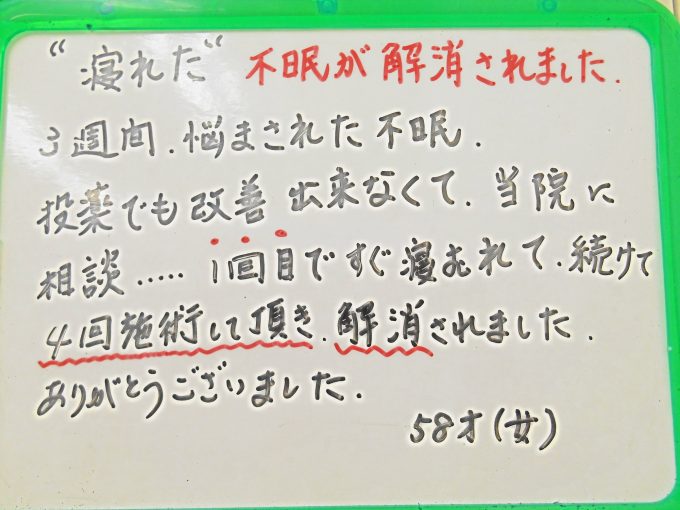 “寝れた“ 不眠が解消されました.
3週間.悩まされた不眠.
投薬でも改善出来なくて.当院に
相談.....1回目ですぐ寝むれて.続けて
4回施術して頂き.解消されました.
ありがとうございました.
58才(女)